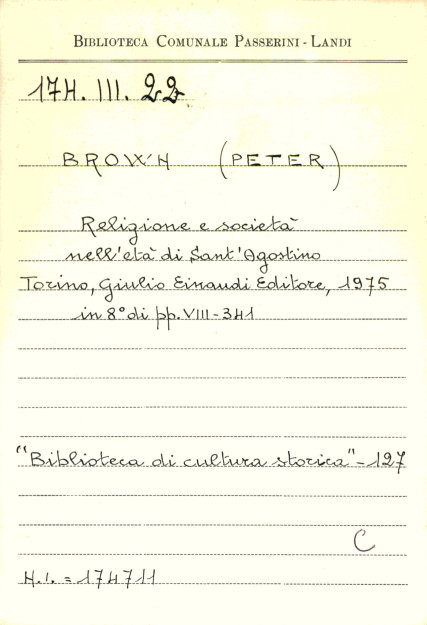 BIBLIOTECA COMUNALE PASSERINI - LANDI
17H. III. 22
BROWN (PETER)
Religione e società
nell'età di Sant'Agostino
Torino, Giulio Einaudi Editore, 1975
in 8° di pp. VIII - 341
"Biblioteca di cultura storica" - 127
C
N.i. = 174711